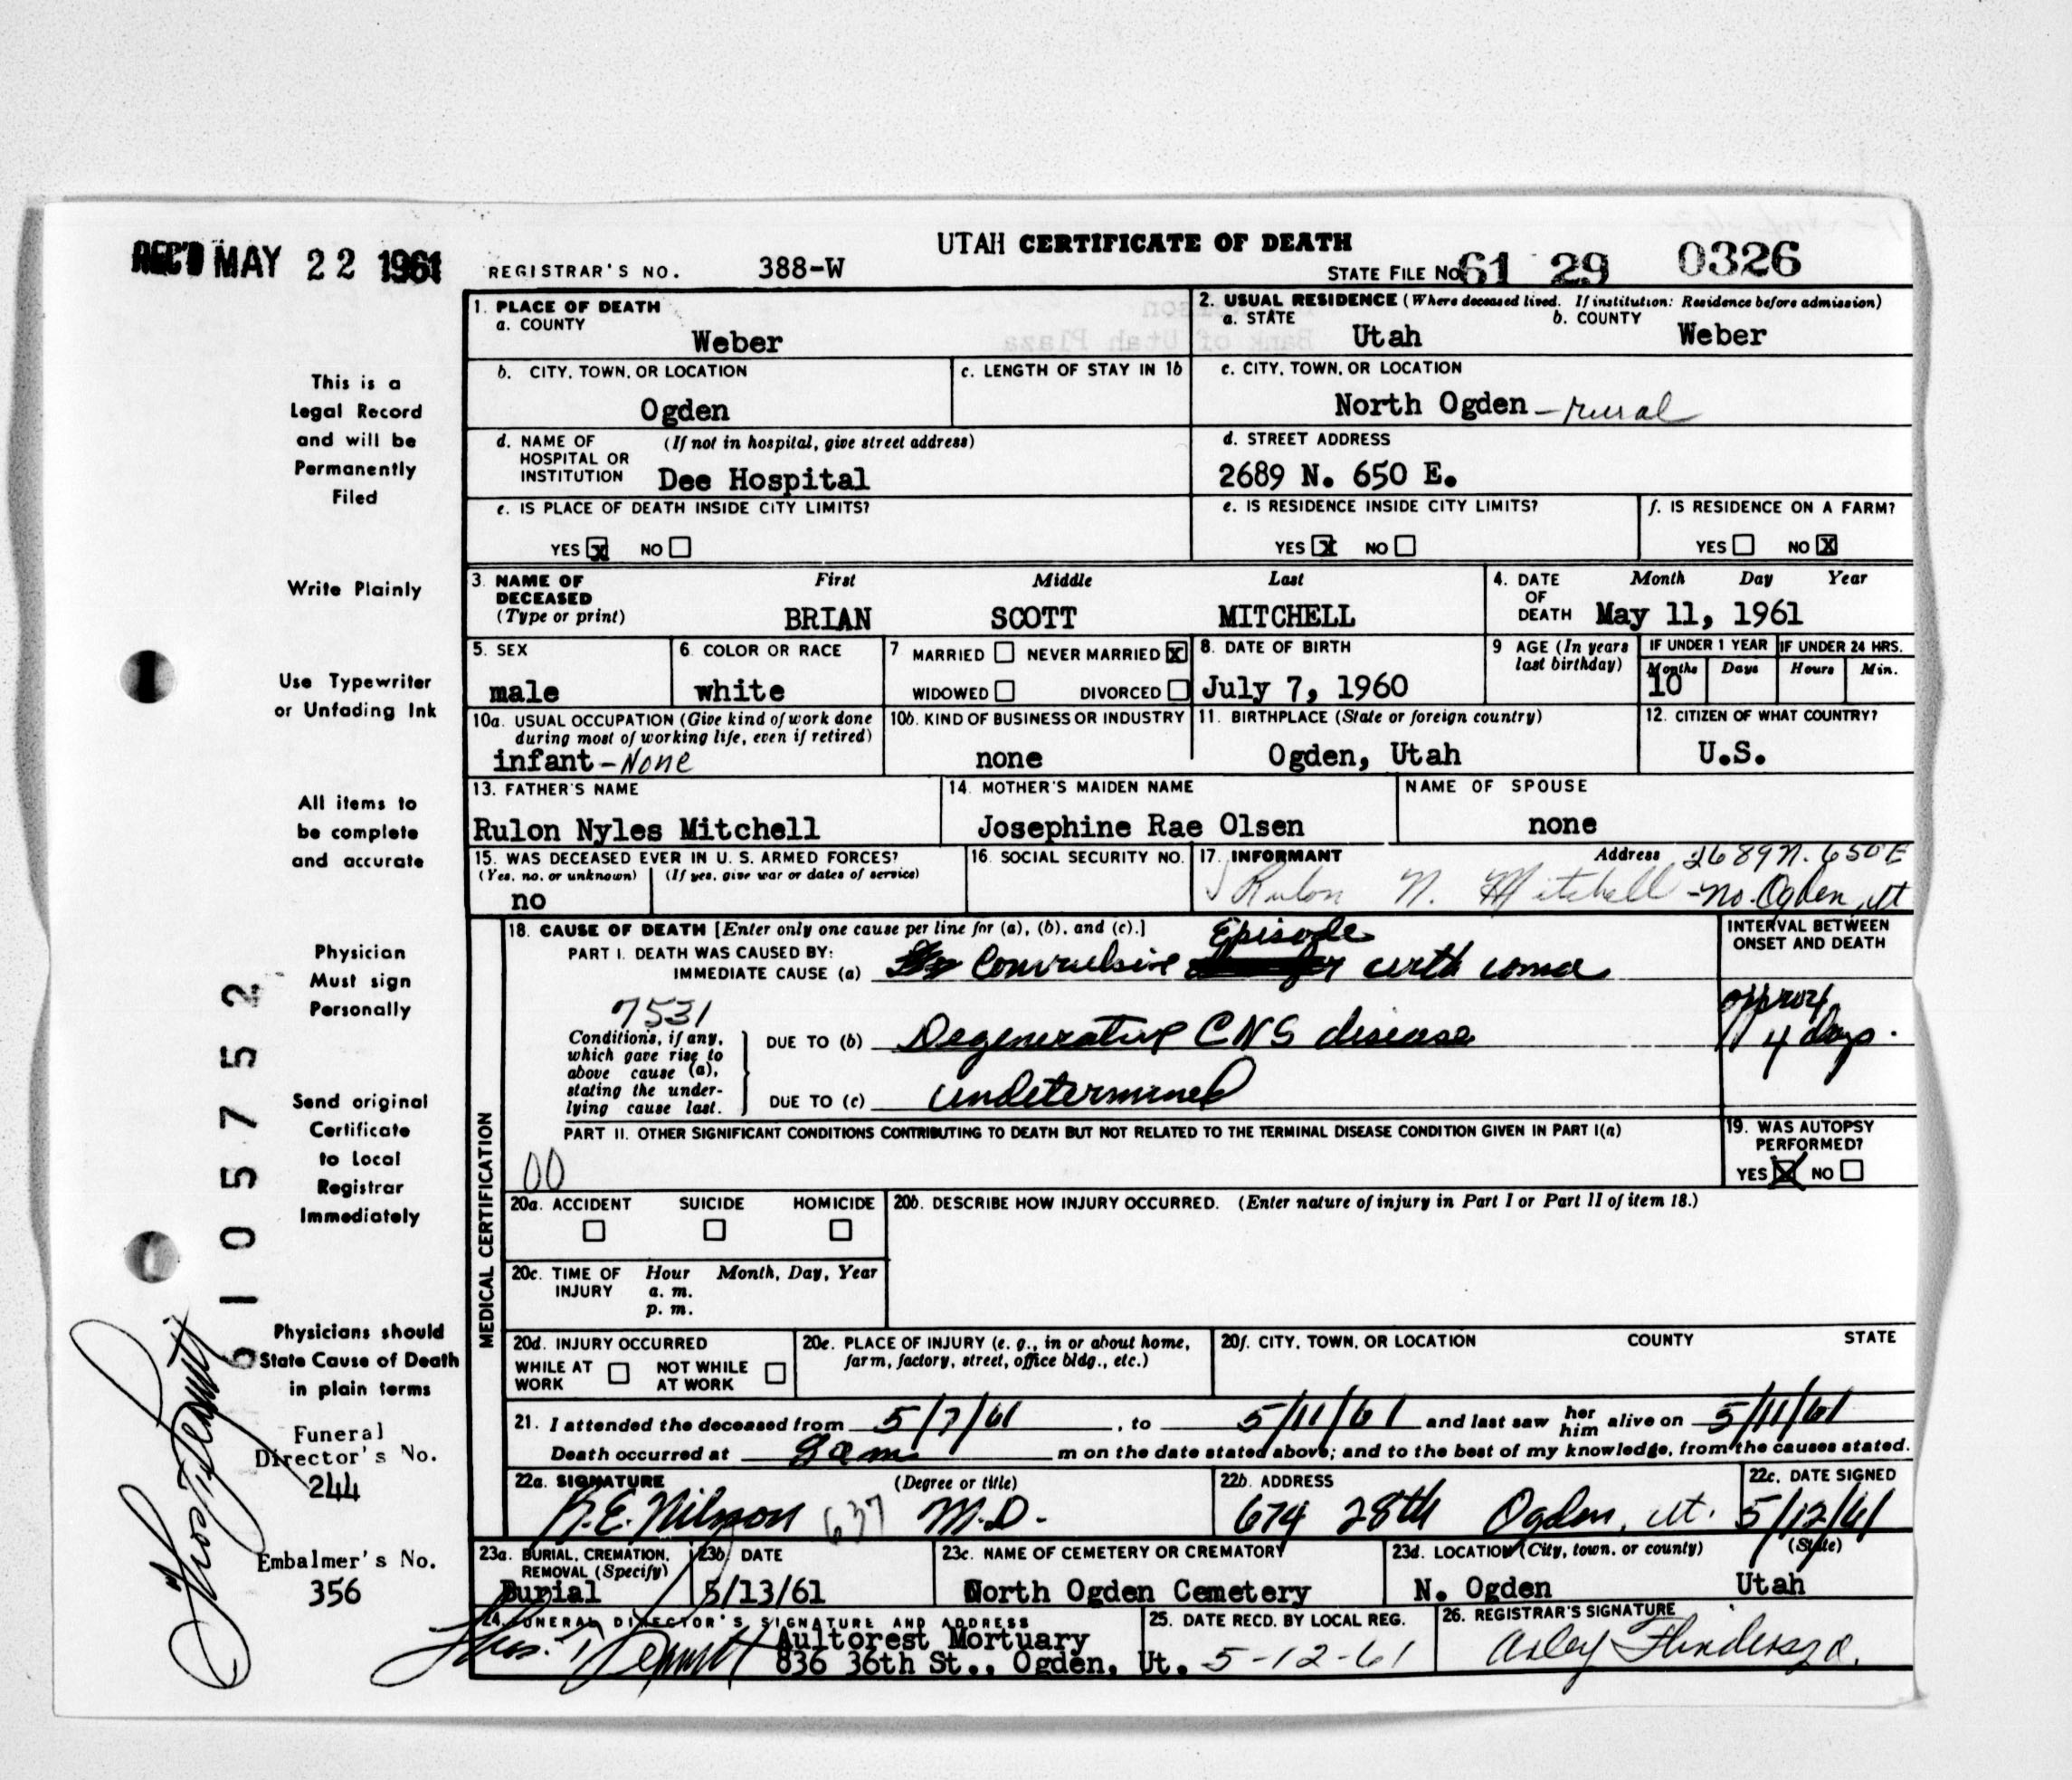 UTAH CERTIFICATE OF DEATH
REC'D MAY 22 1961
REGISTRAR'S NO. 388-W
STATE FILE NO. 61 29 0326
1. PLACE OF DEATH
a. COUNTY
Weber
2. USUAL RESIDENCE (Where deceased lived. If institution: Residence before admission)
a. STATE Utah b. COUNTY Weber
b. CITY, TOWN, OR LOCATION
Ogden
c. LENGTH OF STAY IN 1b
c. CITY, TOWN, OR LOCATION
North Ogden - rural
d. NAME OF HOSPITAL OR INSTITUTION (If not in hospital, give street address)
Dee Hospital
d. STREET ADDRESS
2689 N. 650 E.
e. IS PLACE OF DEATH INSIDE CITY LIMITS?
YES x NO
e. IS RESIDENCE INSIDE CITY LIMITS?
YES x NO
f. IS RESIDENCE ON A FARM?
YES NO X
3. NAME OF DECEASED (Type or print)
First Middle Last
BRIAN SCOTT MITCHELL
4. DATE OF DEATH
Month Day Year
May 11, 1961
5. SEX
male
6. COLOR OR RACE
white
7 MARRIED NEVER MARRIED X
WIDOWED DIVORCED
8. DATE OF BIRTH
July 7, 1960
9 AGE (In years last birthday)
IF UNDER 1 YEAR IF UNDER 24 HRS.
Months Days Hours Min.
10
10a. USUAL OCCUPATION (Give kind of work done during most of working life, even if retired)
infant - None
10b. KIND OF BUSINESS OR INDUSTRY
none
11. BIRTHPLACE (State or foreign country)
Ogden, Utah
12. CITIZEN OF WHAT COUNTRY?
U.S.
13. FATHER'S NAME
Rulon Nyles Mitchell
14. MOTHER'S MAIDEN NAME
Josephine Rae Olsen
NAME OF SPOUSE
none
15. WAS DECEASED EVER IN U. S. ARMED FORCES?
(Yes, no, or unknown) (If yes, give war or dates of service)
no
16. SOCIAL SECURITY NO.
17. INFORMANT Address 2689 N. 650 E
Rulon N. Mitchell - No. Ogden, Ut
18. CAUSE OF DEATH [Enter only one cause per line for (a), (b), and (c).]
PART I. DEATH WAS CAUSED BY:
Episode
IMMEDIATE CAUSE (a) Convulsive with coma
7531
Conditions, if any, which gave rise to above cause (a), stating the underlying cause last.
DUE TO (b) Degenerative CNS disease
DUE TO (c) undetermined
INTERVAL BETWEEN ONSET AND DEATH
approx
4 days.
PART II. OTHER SIGNIFICANT CONDITIONS CONTRIBUTING TO DEATH BUT NOT RELATED TO THE TERMINAL DISEASE CONDITION GIVEN IN PART I(a)
00
19. WAS AUTOPSY PERFORMED?
YES X NO
20a. ACCIDENT SUICIDE HOMICIDE
20b. DESCRIBE HOW INJURY OCCURRED. (Enter nature of injury in Part I or Part II of item 18.)
20c. TIME OF INJURY Hour Month, Day, Year
a. m.
p. m.
20d. INJURY OCCURRED
WHILE AT WORK NOT WHILE AT WORK
20e. PLACE OF INJURY (e. g., in or about home, farm, factory, street, office bldg., etc.)
20f. CITY, TOWN, OR LOCATION COUNTY STATE
21. I attended the deceased from 5/7/61, to 5/11/61 and last saw her him alive on 5/11/61
Death occurred at m on the date stated above; and to the best of my knowledge, from the causes stated.
22a. SIGNATURE (Degree or title)
R.E. Nilsson 637 M.D.
22b. ADDRESS
674 28th Ogden, Ut.
22c. DATE SIGNED
5/12/61
23a. BURIAL, CREMATION, REMOVAL (Specify)
Burial
23b. DATE
5/13/61
23c. NAME OF CEMETERY OR CREMATORY
North Ogden Cemetery
23d. LOCATION (City, town, or county) (State)
N. Ogden Utah
24. FUNERAL DIRECTOR'S SIGNATURE AND ADDRESS
Aultorest Mortuary
836 36th St., Ogden, Ut.
25. DATE RECD. BY LOCAL REG.
5-12-61
26. REGISTRAR'S SIGNATURE
MEDICAL CERTIFICATION
This is a
Legal Record
and will be
Permanently
Filed
Write Plainly
Use Typewriter
or Unfading Ink
All items to
be complete
and accurate
Physician
Must sign
Personally
Send original
Certificate
to Local
Registrar
Immediately
Physicians should
State Cause of Death
in plain terms
Funeral
Director's No.
244
Embalmer's No.
356
6105752